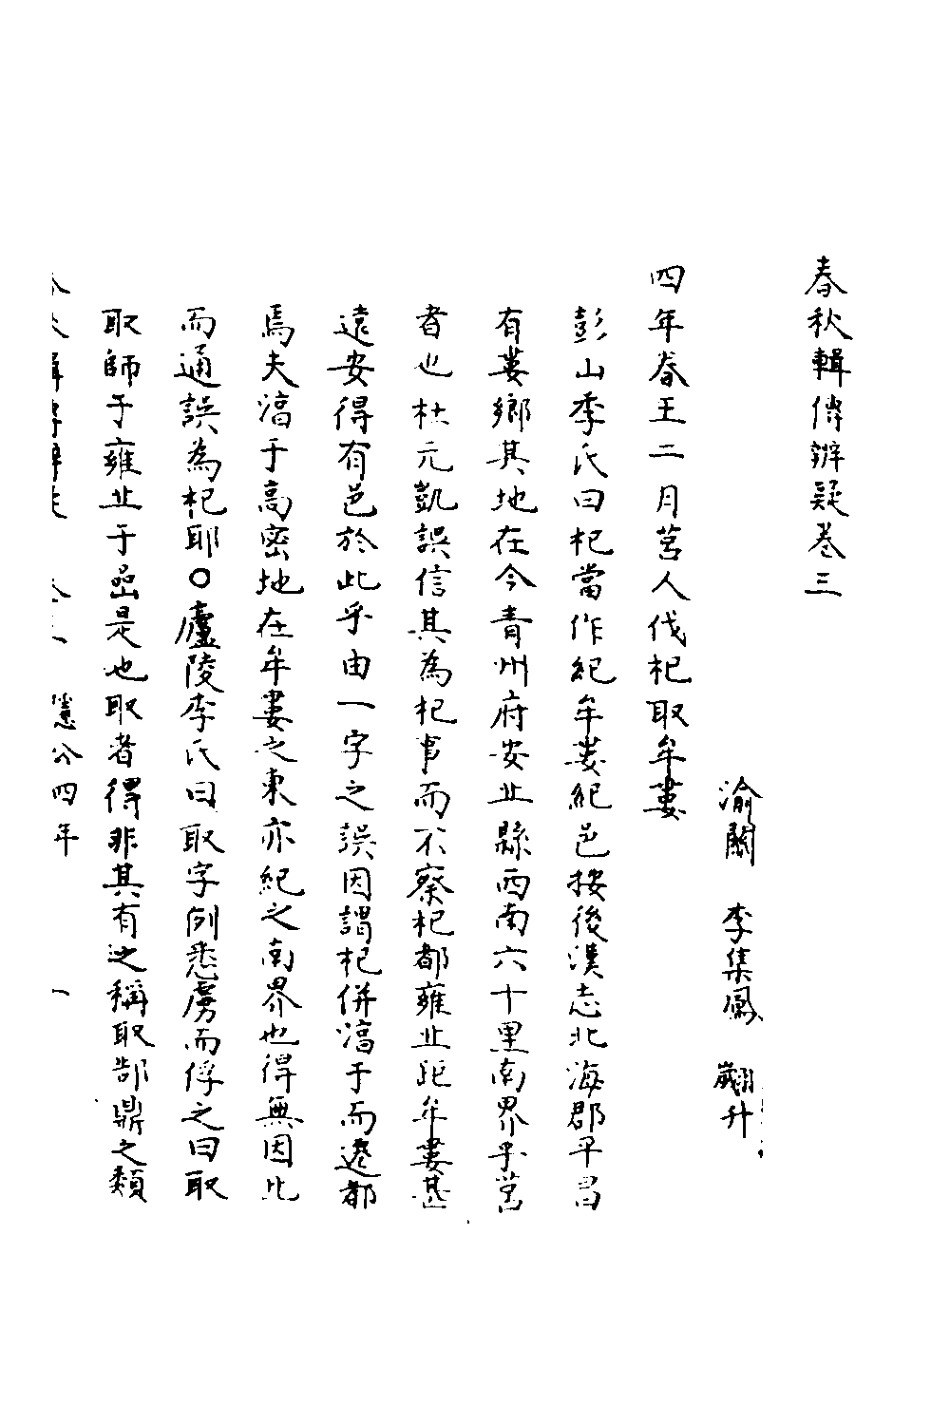 春秋輯傳辨疑卷三
渝關 李集鳳 翽升
四年春王二月莒人伐杞取牟婁
彭山季氏曰杞當作紀牟婁紀邑按後漢志北海郡平昌
有婁鄉其地在今青州府安丘縣西南六十里南界乎莒
者也杜元凱誤信其為杞事而不察杞都雍丘距牟婁甚
遠安得有邑於此乎由一字之誤因謂杞併淳于而遷都
焉夫淳于高密地在牟婁之東亦紀之南界也得無因此
而通誤為杞耶〇廬陵李氏曰取字例悉虜而俘之曰取
取師于雍丘于嵒是也取者得非其有之稱取郜鼎之類
春秋輯傳辨疑 卷三 隱公四年 一